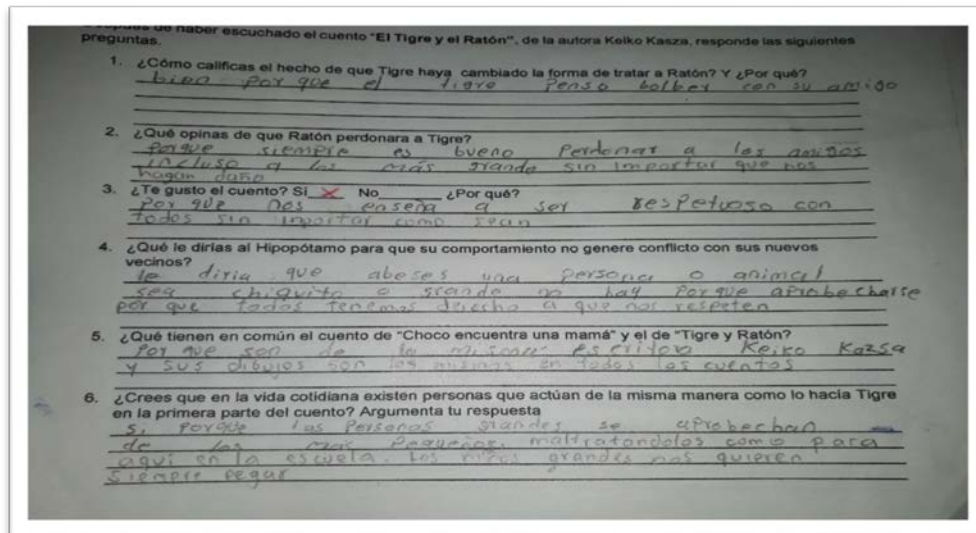 Después de haber escuchado el cuento "El Tigre y el Ratón", de la autora Keiko Kasza, responde las siguientes
preguntas.
1. ¿Cómo calificas el hecho de que Tigre haya cambiado la forma de tratar a Ratón? Y ¿Por qué?
bien por que el tigre Penso bolber con su amigo
2. ¿Qué opinas de que Ratón perdonara a Tigre?
Porque siempre es bueno Perdonar a los amigos
incluso a los más grande sin importar que nos
hagan daño
3. ¿Te gusto el cuento? Si X No ¿Por qué?
Por que nos enseña a ser respetuoso con
todos sin importar como sean
4. ¿Qué le dirías al Hipopótamo para que su comportamiento no genere conflicto con sus nuevos
vecinos?
le diria que abeses una persona o animal
sea chiquito o grande no hay Porque aprobecharse
por que todos tenemos derecho a que nos respeten
5. ¿Qué tienen en común el cuento de "Choco encuentra una mamá" y el de "Tigre y Ratón?
Por que son de la misma escritora Keiko Kazsa
y sus dibujos son los mismos en todos los cuentos
6. ¿Crees que en la vida cotidiana existen personas que actúan de la misma manera como lo hacía Tigre
en la primera parte del cuento? Argumenta tu respuesta
Si Porque las Personas grandes se aprobechan
de los mas Pequeños, maltratandolos como para
aqui en la escuela. Los niños grandes nos quieren
Siempre pegar